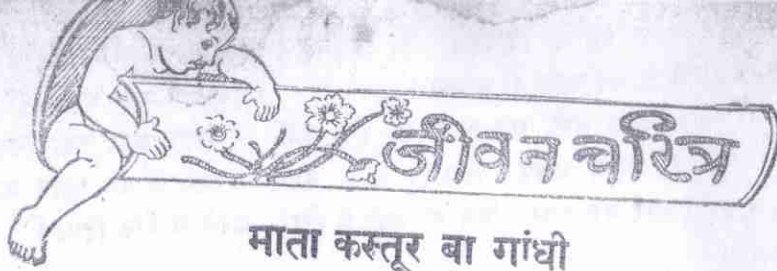 जीवन चरित्र
माता कस्तूर बा गांधी